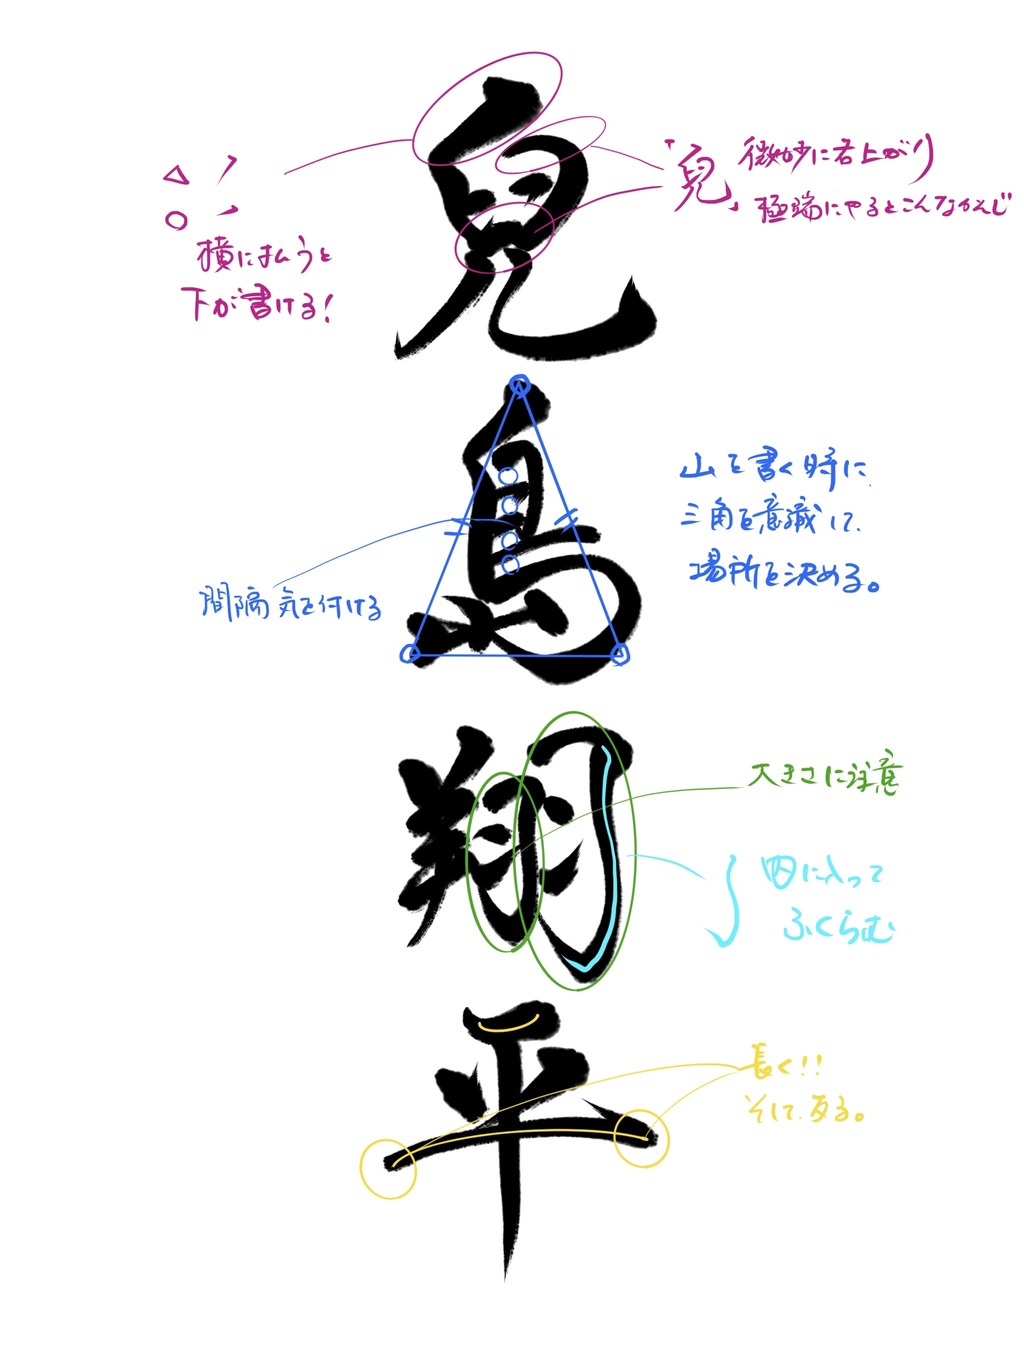 兒
△
○
横に払うと
下が書ける!
「兒」
微妙に右上がり
極端にやるとこんなかんじ
島
山を書く時に
三角を意識して、
場所を決める。
間隔気を付ける
翔
大きさに注意
内に入って
ふくらむ
平
長く!!
そして、反る。